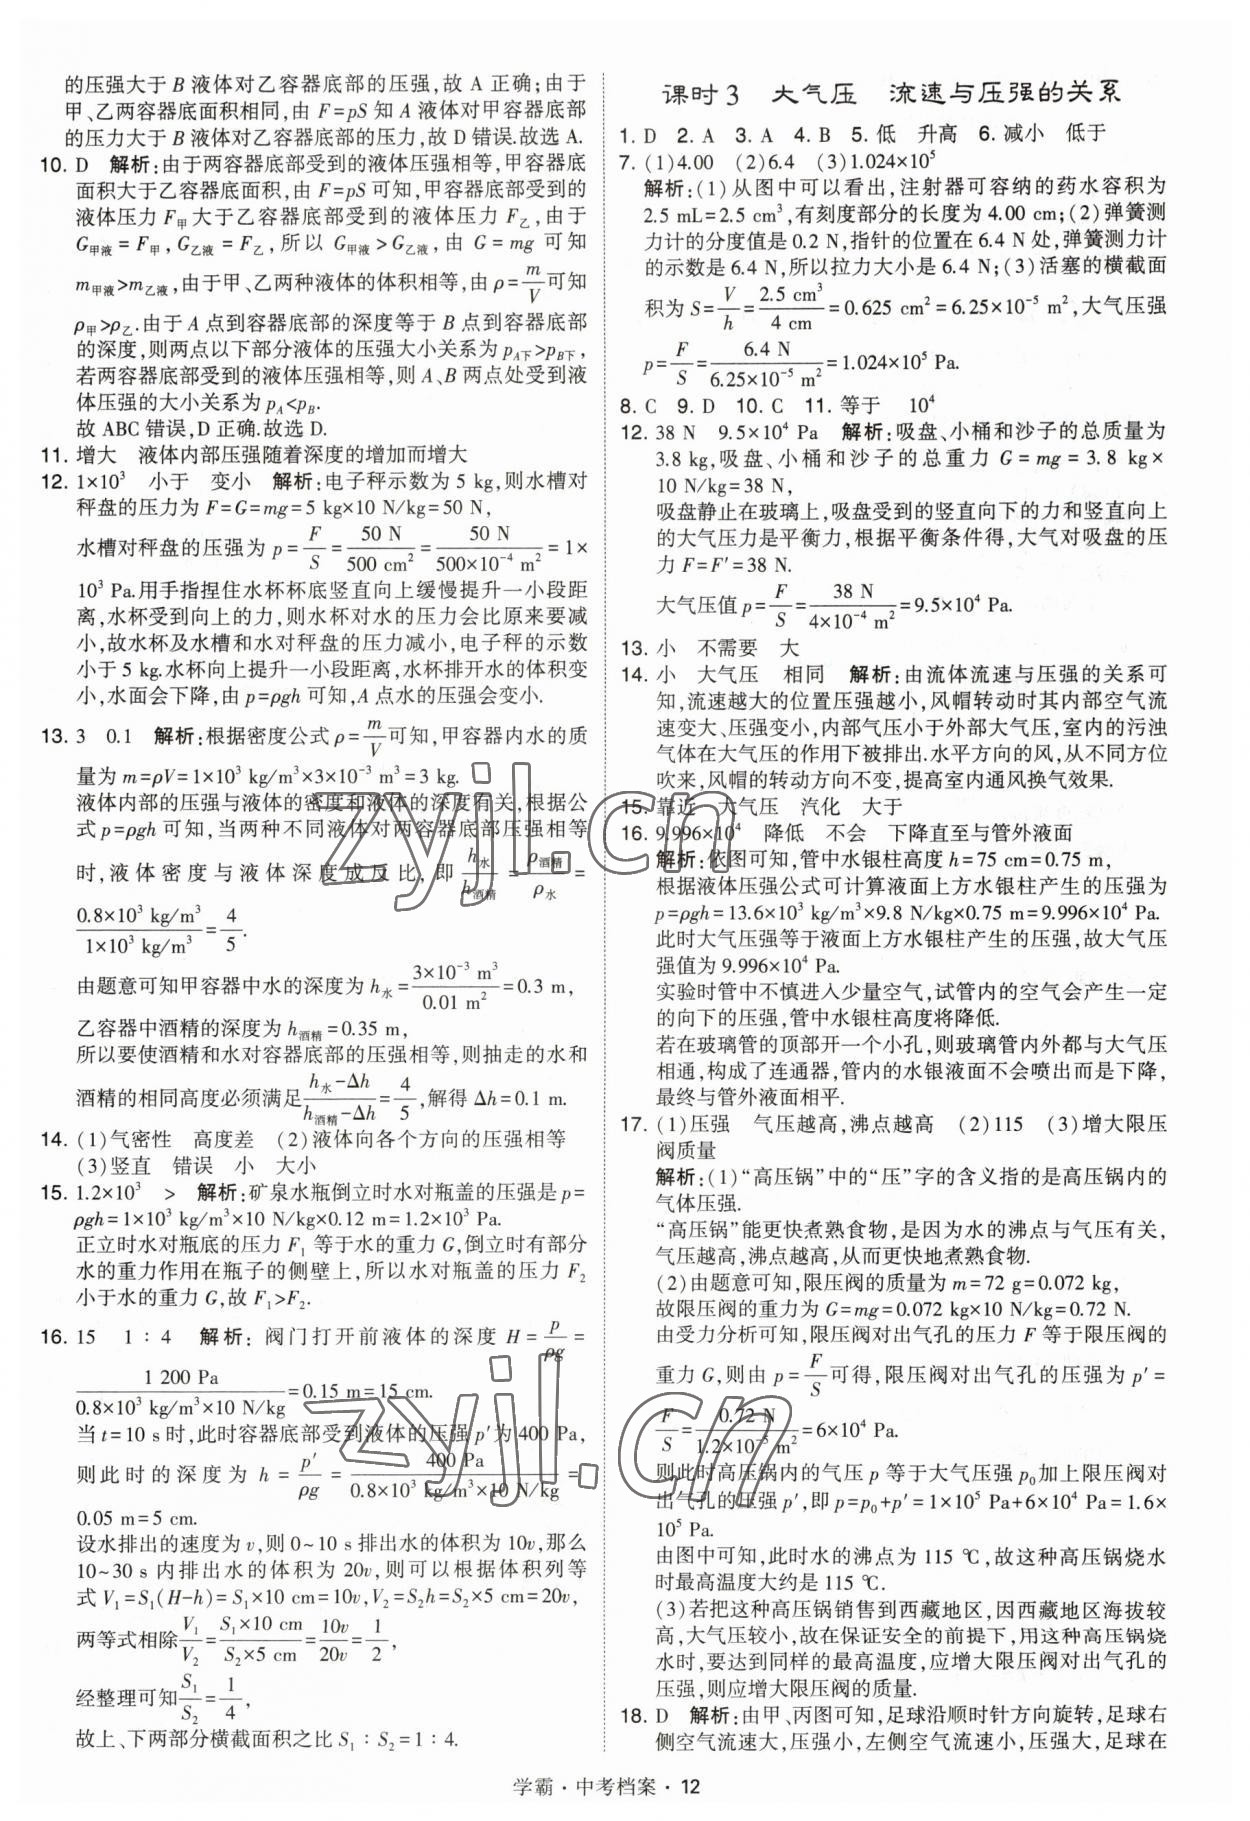 的压强大于 B 液体对乙容器底部的压强,故 A 正确;由于
甲、乙两容器底面积相同,由 F=pS 知 A 液体对甲容器底部
的压力大于 B 液体对乙容器底部的压力,故 D 错误.故选 A.
10. D 解析:由于两容器底部受到的液体压强相等,甲容器底
面积大于乙容器底面积,由 F=pS 可知,甲容器底部受到的
液体压力 F甲大于乙容器底部受到的液体压力 F乙,由于
G甲液 = F甲, G乙液 = F乙,所以 G甲液 > G乙液,由 G = mg 可知
m甲液>m乙液,由于甲、乙两种液体的体积相等,由 ρ=m/V可知
ρ甲>ρ乙.由于 A 点到容器底部的深度等于 B 点到容器底部
的深度,则两点以下部分液体的压强大小关系为 pA下>pB下,
若两容器底部受到的液体压强相等,则 A、B 两点处受到液
体压强的大小关系为 pA<pB.
故 ABC 错误,D 正确.故选 D.
11. 增大 液体内部压强随着深度的增加而增大
12. 1×10³ 小于 变小 解析:电子秤示数为 5 kg,则水槽对
秤盘的压力为 F=G=mg=5 kg×10 N/kg=50 N,
水槽对秤盘的压强为 p=F/S=50 N/500 cm²=50 N/(500×10⁻⁴ m²)=1×
10³ Pa.用手指捏住水杯杯底竖直向上缓慢提升一小段距
离,水杯受到向上的力,则水杯对水的压力会比原来要减
小,故水杯及水槽和水对秤盘的压力减小,电子秤的示数
小于 5 kg.水杯向上提升一小段距离,水杯排开水的体积变
小,水面会下降,由 p=ρgh 可知,A 点水的压强会变小.
13. 3 0.1 解析:根据密度公式 ρ=m/V可知,甲容器内水的质
量为 m=ρV=1×10³ kg/m³×3×10⁻³ m³=3 kg.
液体内部的压强与液体的密度和液体的深度有关,根据公
式 p=ρgh 可知,当两种不同液体对两容器底部压强相等
时,液体密度与液体深度成反比,即 h水/h酒精 = ρ酒精/ρ水 =
(0.8×10³ kg/m³)/(1×10³ kg/m³)=4/5.
由题意可知甲容器中水的深度为 h水=(3×10⁻³ m³)/(0.01 m²)=0.3 m,
乙容器中酒精的深度为 h酒精=0.35 m,
所以要使酒精和水对容器底部的压强相等,则抽走的水和
酒精的相同高度必须满足(h水-Δh)/(h酒精-Δh)=4/5,解得 Δh=0.1 m.
14. (1)气密性 高度差 (2)液体向各个方向的压强相等
(3)竖直 错误 小 大小
15. 1.2×10³ > 解析:矿泉水瓶倒立时水对瓶盖的压强是 p=
ρgh=1×10³ kg/m³×10 N/kg×0.12 m=1.2×10³ Pa.
正立时水对瓶底的压力 F₁ 等于水的重力 G,倒立时有部分
水的重力作用在瓶子的侧壁上,所以水对瓶盖的压力 F₂
小于水的重力 G,故 F₁>F₂.
16. 15 1∶4 解析:阀门打开前液体的深度 H = p/ρg =
1 200 Pa/(0.8×10³ kg/m³×10 N/kg)=0.15 m=15 cm.
当 t=10 s 时,此时容器底部受到液体的压强 p′为 400 Pa,
则此时的深度为 h = p′/ρg = 400 Pa/(0.8×10³ kg/m³×10 N/kg) =
0.05 m=5 cm.
设水排出的速度为 v,则 0~10 s 排出水的体积为 10v,那么
10~30 s 内排出水的体积为 20v,则可以根据体积列等
式 V₁=S₁(H-h)=S₁×10 cm=10v,V₂=S₂h=S₂×5 cm=20v,
两等式相除V₁/V₂=(S₁×10 cm)/(S₂×5 cm)=10v/20v=1/2,
经整理可知S₁/S₂=1/4,
故上、下两部分横截面积之比 S₁∶S₂=1∶4.
课时 3 大气压 流速与压强的关系
1. D 2. A 3. A 4. B 5. 低 升高 6. 减小 低于
7. (1)4.00 (2)6.4 (3)1.024×10⁵
解析:(1)从图中可以看出,注射器可容纳的药水容积为
2.5 mL=2.5 cm³,有刻度部分的长度为 4.00 cm;(2)弹簧测
力计的分度值是 0.2 N,指针的位置在 6.4 N 处,弹簧测力计
的示数是 6.4 N,所以拉力大小是 6.4 N;(3)活塞的横截面
积为 S=V/h=2.5 cm³/4 cm=0.625 cm²=6.25×10⁻⁵ m²,大气压强
p=F/S=6.4 N/(6.25×10⁻⁵ m²)=1.024×10⁵ Pa.
8. C 9. D 10. C 11. 等于 10⁴
12. 38 N 9.5×10⁴ Pa 解析:吸盘、小桶和沙子的总质量为
3.8 kg,吸盘、小桶和沙子的总重力 G = mg = 3.8 kg×
10 N/kg=38 N,
吸盘静止在玻璃上,吸盘受到的竖直向下的力和竖直向上
的大气压力是平衡力,根据平衡条件得,大气对吸盘的压
力 F=F′=38 N.
大气压值 p=F/S=38 N/(4×10⁻⁴ m²)=9.5×10⁴ Pa.
13. 小 不需要 大
14. 小 大气压 相同 解析:由流体流速与压强的关系可
知,流速越大的位置压强越小,风帽转动时其内部空气流
速变大、压强变小,内部气压小于外部大气压,室内的污浊
气体在大气压的作用下被排出.水平方向的风,从不同方位
吹来,风帽的转动方向不变,提高室内通风换气效果.
15. 靠近 大气压 汽化 大于
16. 9.996×10⁴ 降低 不会 下降直至与管外液面
解析:依图可知,管中水银柱高度 h=75 cm=0.75 m,
根据液体压强公式可计算液面上方水银柱产生的压强为
p=ρgh=13.6×10³ kg/m³×9.8 N/kg×0.75 m=9.996×10⁴ Pa.
此时大气压强等于液面上方水银柱产生的压强,故大气压
强值为 9.996×10⁴ Pa.
实验时管中不慎进入少量空气,试管内的空气会产生一定
的向下的压强,管中水银柱高度将降低.
若在玻璃管的顶部开一个小孔,则玻璃管内外都与大气压
相通,构成了连通器,管内的水银液面不会喷出而是下降,
最终与管外液面相平.
17. (1)压强 气压越高,沸点越高 (2)115 (3)增大限压
阀质量
解析:(1)“高压锅”中的“压”字的含义指的是高压锅内的
气体压强.
“高压锅”能更快煮熟食物,是因为水的沸点与气压有关,
气压越高,沸点越高,从而更快地煮熟食物.
(2)由题意可知,限压阀的质量为 m=72 g=0.072 kg,
故限压阀的重力为 G=mg=0.072 kg×10 N/kg=0.72 N.
由受力分析可知,限压阀对出气孔的压力 F 等于限压阀的
重力 G,则由 p=F/S可得,限压阀对出气孔的压强为 p′=
F/S=0.72 N/(1.2×10⁻⁵ m²)=6×10⁴ Pa,
则此时高压锅内的气压 p 等于大气压强 p₀加上限压阀对
出气孔的压强 p′,即 p=p₀+p′=1×10⁵ Pa+6×10⁴ Pa=1.6×
10⁵ Pa.
由图中可知,此时水的沸点为 115 ℃,故这种高压锅烧水
时最高温度是 115 ℃.
(3)若把这种高压锅销售到西藏地区,因西藏地区海拔较
高,大气压较小,故在保证安全的前提下,用这种高压锅烧
水时,要达到同样的最高温度,应增大限压阀对出气孔的
压强,则应增大限压阀的质量.
18. D 解析:由甲、丙图可知,足球沿顺时针方向旋转,足球右
侧空气流速大,压强小,左侧空气流速小,压强大,足球在
学霸·中考档案·12
zyjl.cn
zyjl.cn